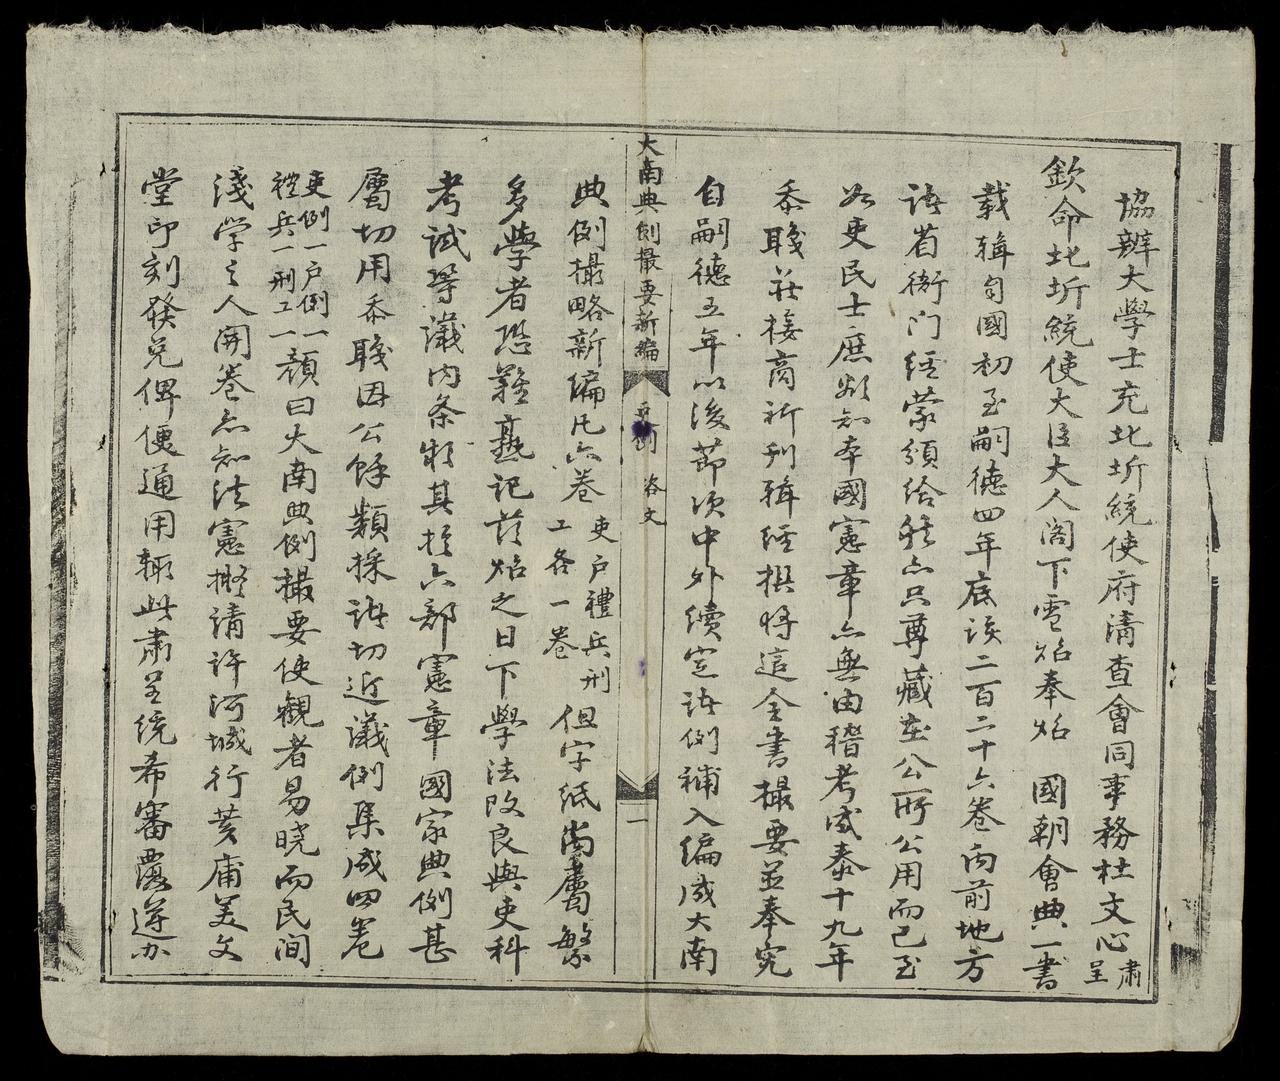 協辨大學士充北圻統使府清查會同事務杜文心肅呈
欽命北圻統使大臣大人閣下電炤奉炤 國朝會典一書
載輯自國初至嗣德四年底該二百二十六卷內前地方
諸省衙門経蒙頒給然亦只尊藏在公所公用而已至
如吏民士庶欲知本國憲章亦無由稽考成泰十九年
忝職莊接商祈刊輯經撰將這全書撮要並奉究
自嗣德五年以後節次中外續定諸例補入編成大南
大南典例撮要新編
咨文
一
典例撮略新編凡六卷吏户禮兵刑工各一卷但字紙尚屬繁
多學者恐難熟記茲炤之日下學法改良與吏科
考試等議內条款其於六部憲章國家典例甚
屬切用忝職因公餘類採諸切近議例集成四卷
吏例一户例一禮兵一刑工一顏曰大南典例撮要使觀者易曉而民间
淺学之人開卷亦知法憲擬請許河城行黄甫美文
堂印刻發兌俾便通用輙此肅呈統希審覆遵办